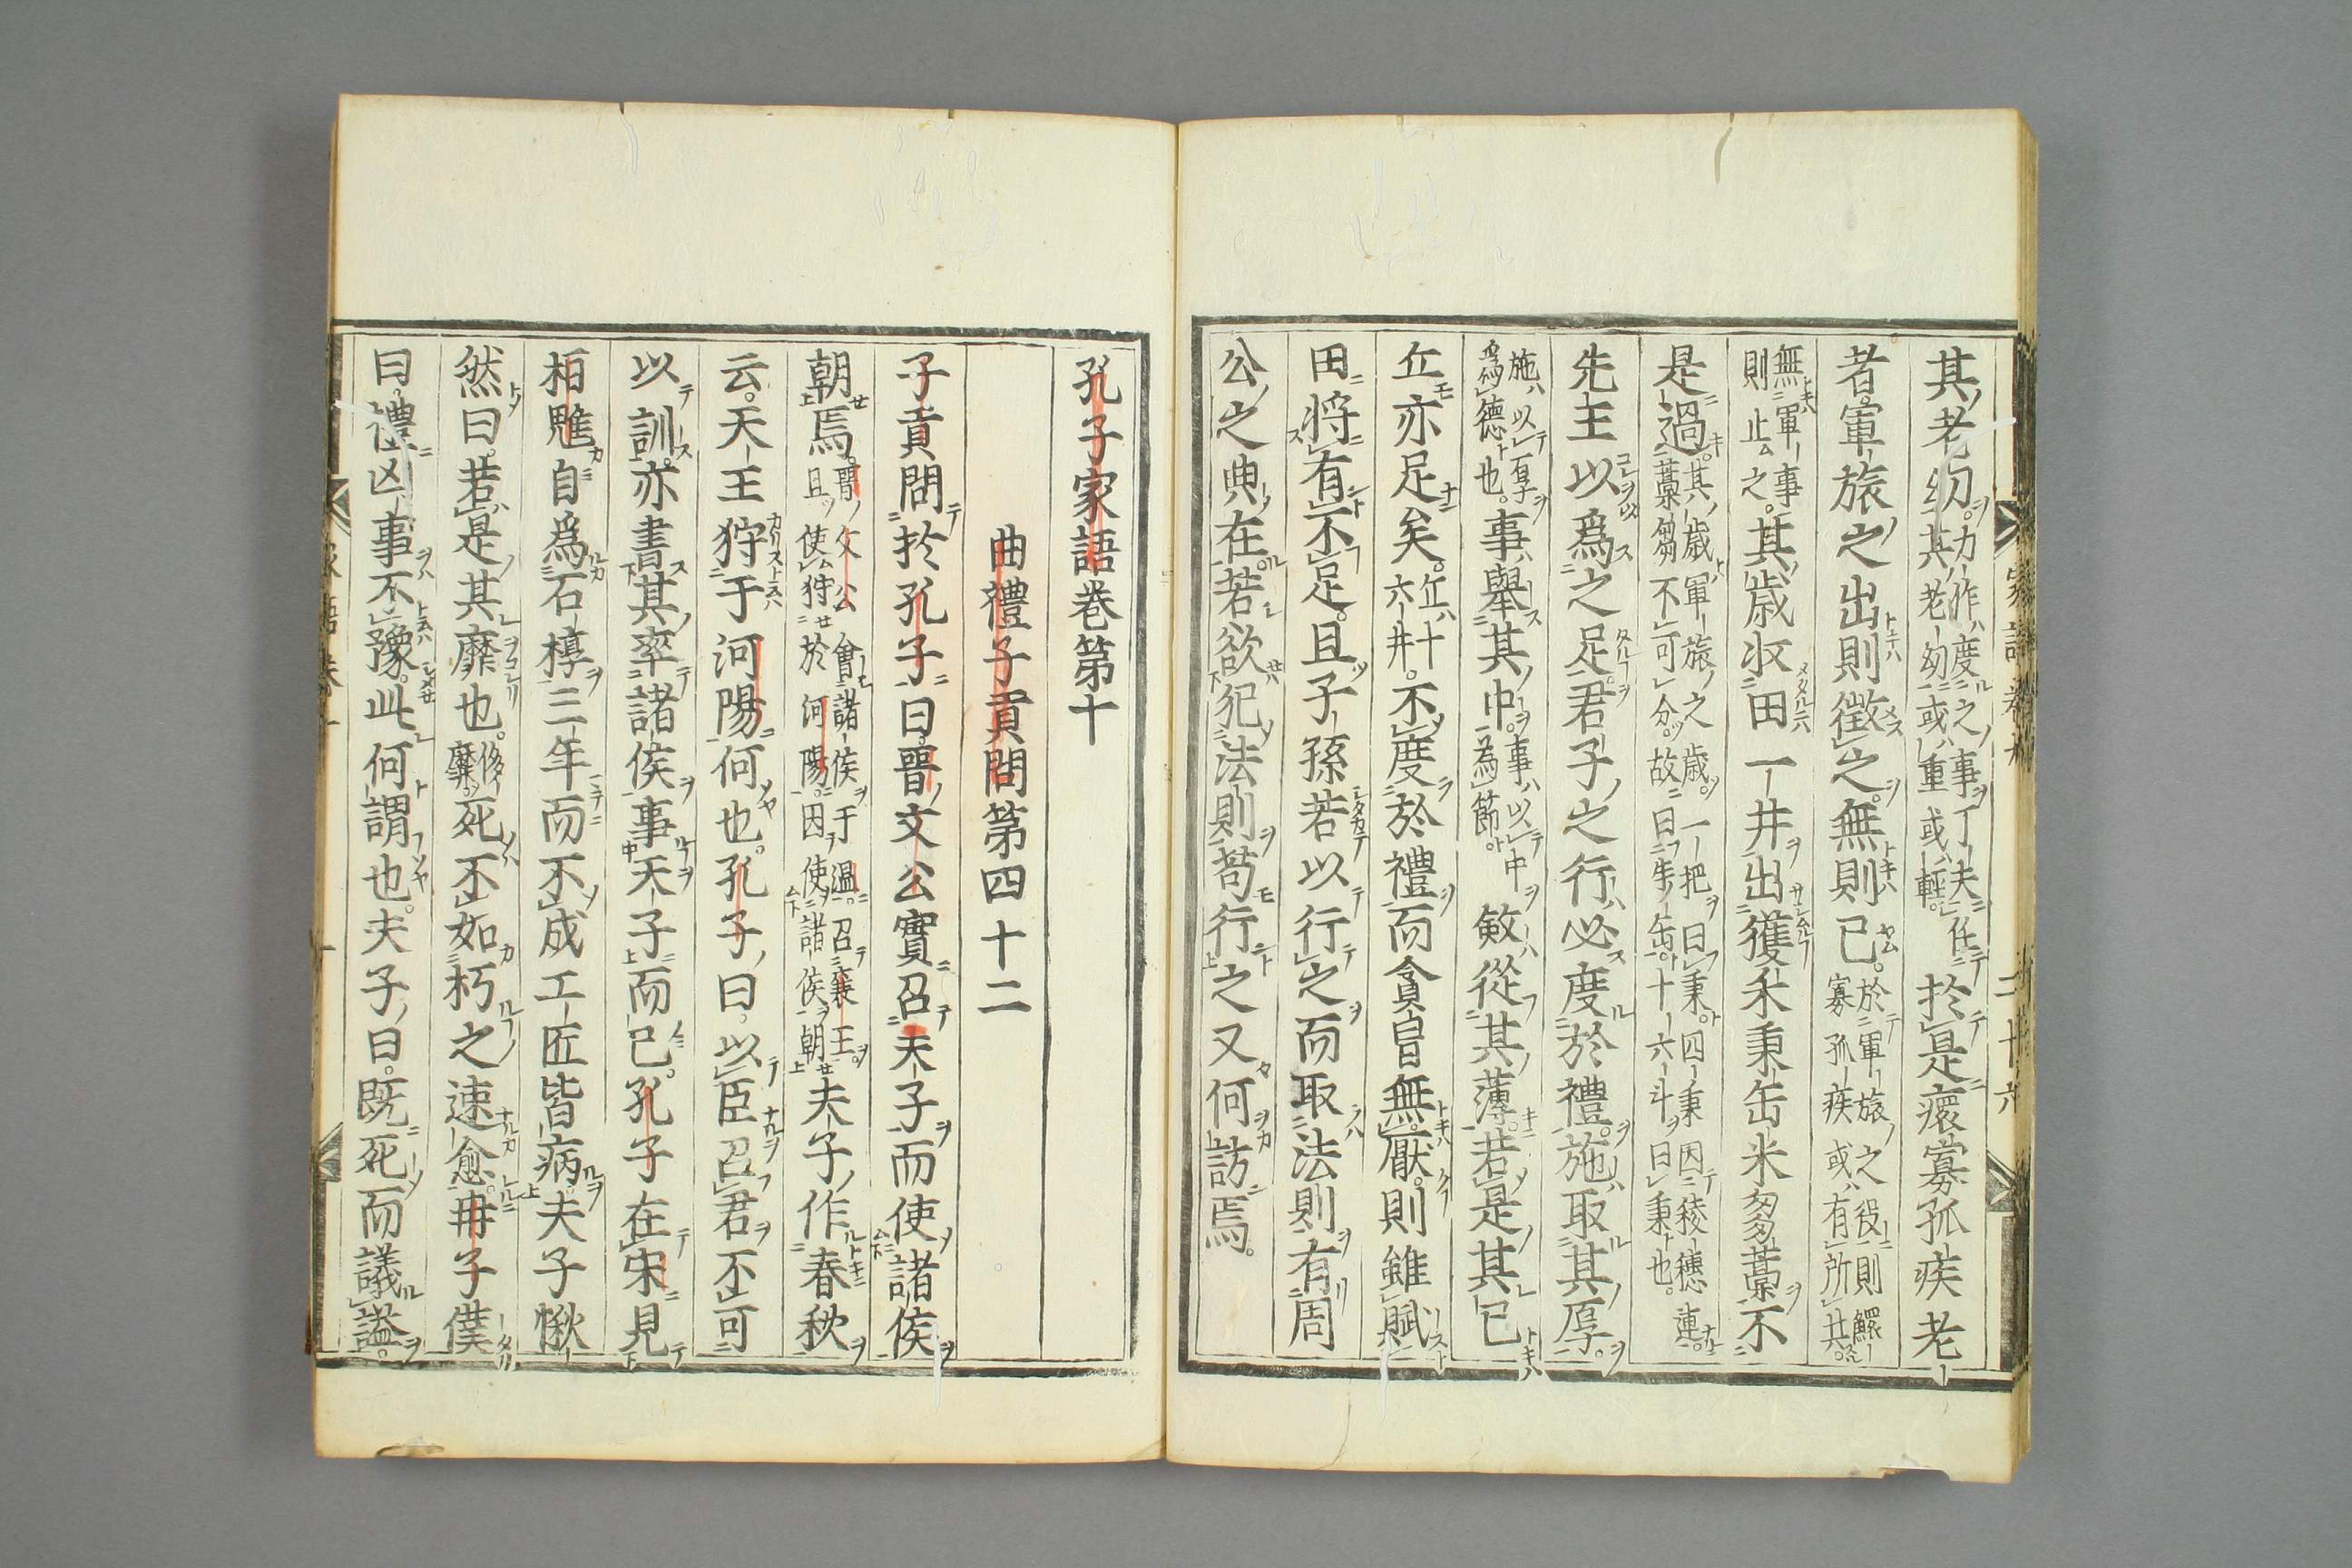 其老幼力作度之事丁夫任於是瘝寡孤疾老
其老幼或重或輕
者軍旅之出則徵之無則已於軍旅之役則鰥
寡孤疾或有所共
無軍事
則止之其歲收田一井出獲禾秉缶米芻藁不
是過其歲軍旅之歲一把曰秉四秉因稜穗連
藁芻不可分故曰缶十六斗曰秉也
先王以爲之足君子之行必度於禮施取其厚
施以厚
爲德也事舉其中事以中
為節斂從其薄若是其已
丘亦足矣丘十
六井不度於禮而貪冒無厭則雖賦
田將有不足且子孫若以行之而取法則有周
公之典在若欲犯法則苟行之又何訪焉
孔子家語巻第十
曲禮子貢問第四十二
子貢問於孔子曰晉文公實召天子而使諸侯
朝焉晉文公會諸侯于溫召襄王
且使狩於河陽因使諸侯朝夫子作春秋
云天王狩于河陽何也孔子曰以臣召君不可
以訓亦書其率諸侯事天子而已孔子在宋見
桓魋自爲石椁三年而不成工匠皆病夫子愀
然曰若是其靡也侈
靡死不如朽之速愈冉子僕
曰禮凶事不豫此何謂也夫子曰既死而議謚